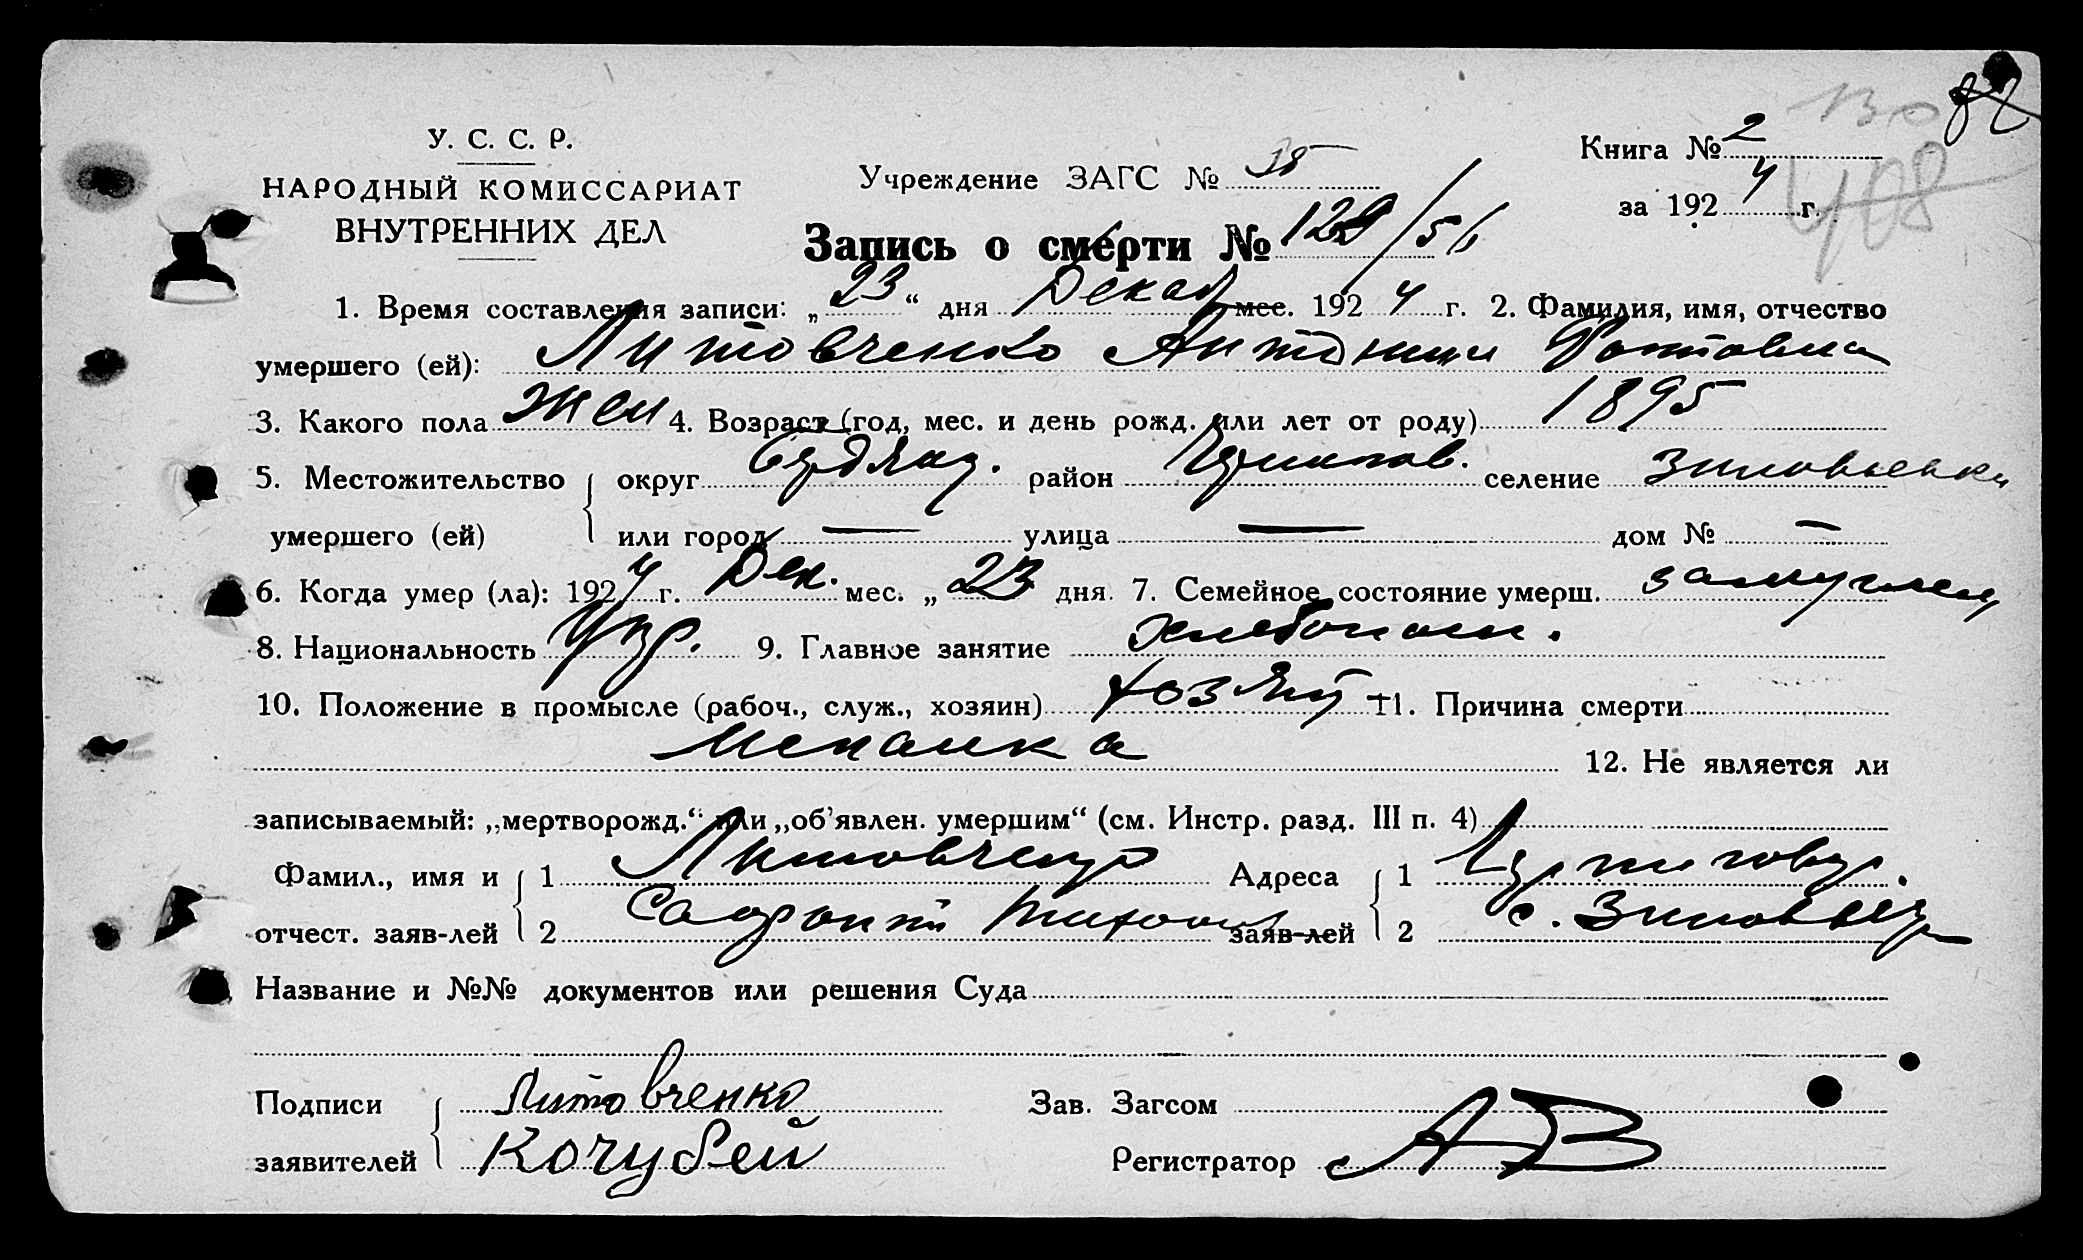 82
130
У. С. С. Р.
НАРОДНЫЙ КОМИССАРИАТ
ВНУТРЕННИХ ДЕЛ
Учреждение ЗАГС №
Книга № 2
за 1924 г.
408
Запись о смерти № 129/56
1. Время составления записи: „23“ дня Декаб мес. 1924 г. 2. Фамилия, имя, отчество
умершего (ей): Литовченко Антонина
3. Какого пола жен 4. Возраст (год, мес. и день рожд. или лет от роду) 1895
5. Местожительство округ район селение
умершего (ей) или город — улица — дом № —
6. Когда умер (ла): 1924 г. Дек. мес. „23 дня. 7. Семейное состояние умерш. замужем
8. Национальность Укр. 9. Главное занятие
10. Положение в промысле (рабоч., служ., хозяин) 11. Причина смерти
12. Не является ли
записываемый: „мертворожд.“ или „об'явлен. умершим“ (см. Инстр. разд. III п. 4)
Фамил., имя и 1 Литовченко Адреса 1
отчест. заяв-лей 2 заяв-лей 2 с.
Название и №№ документов или решения Суда
Подписи Литовченко Зав. Загсом
заявителей Кочубей Регистратор